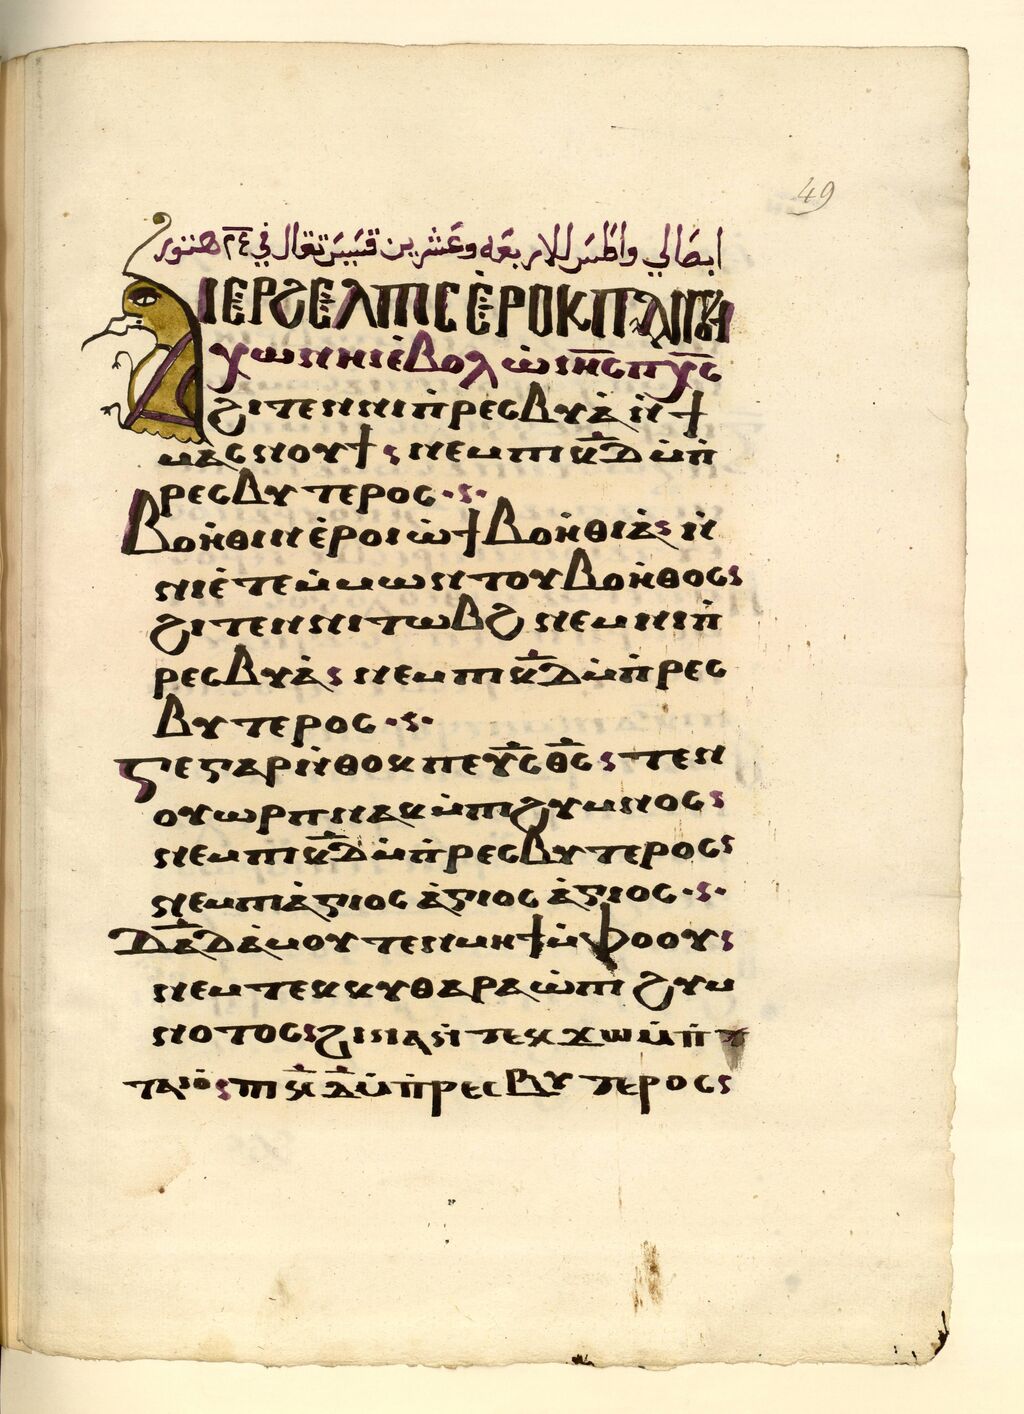 49
ابصالي واطس للاربعه وعشرين قسيس تقال في ٢٤ هتور
ⲁⲓⲉⲣϩⲉⲗⲡⲓⲥ ⲉ̀ⲣⲟⲕ ⲡⲁⲛⲟⲩϯ
ⲭⲱ ⲛⲏⲓ ⲉ̀ⲃⲟⲗ ⲱ̀ ⲓⲏ̅ⲥ ⲡⲭ̅ⲥ
ϩⲓⲧⲉⲛ ⲛⲓⲡ̀ⲣⲉⲥⲃⲩⲁ̀ ⲛ̀ϯ
ⲙⲁⲥⲛⲟⲩϯ ⲛⲉⲙ ⲡⲓⲕ̅ⲇ̅ ⲙ̀ⲡ̀
ⲣⲉⲥⲃⲩⲧⲉⲣⲟⲥ
ⲃⲟⲏ̀ⲑⲓⲛ ⲉ̀ⲣⲟⲓ ⲱ̀ ϯⲃⲟⲏ̀ⲑⲓⲁ̀ ⲛ̀
ⲛⲓⲉ̀ⲧⲉ ⲙ̀ⲙⲱⲛⲧⲟⲩ ⲃⲟⲏ̀ⲑⲟⲥ
ϩⲓⲧⲉⲛ ⲛⲓⲧⲱⲃϩ ⲛⲉⲙ ⲛⲓⲡ̀
ⲣⲉⲥⲃⲩⲁ̀ ⲛⲉⲙ ⲡⲓⲕ̅ⲇ̅ ⲙ̀ⲡ̀ⲣⲉⲥ
ⲃⲩⲧⲉⲣⲟⲥ
ⲅⲉ ⲅⲁⲣ ⲛ̀ⲑⲟⲕ ⲡⲉ ⲩ̅ⲥ ⲑ̅ⲥ ⲧⲉⲛ
ⲟⲩⲱⲣⲡ ⲛⲁⲕ ⲙ̀ⲡⲓϩⲩⲙⲛⲟⲥ
ⲛⲉⲙ ⲡⲓⲕ̅ⲇ̅ ⲙ̀ⲡ̀ⲣⲉⲥⲃⲩⲧⲉⲣⲟⲥ
ⲛⲉⲙ ⲡⲓⲁ̀ⲅⲓⲟⲥ ⲁ̀ⲅⲓⲟⲥ ⲁ̀ⲅⲓⲟⲥ
ⲇⲁ̅ⲇ ⲁ̀ⲙⲟⲩ ⲧⲉⲛⲙⲏϯ ⲙ̀ⲫⲟⲟⲩ
ⲛⲉⲙ ⲧⲉⲕⲕⲩⲑⲁⲣⲁ ⲱ̀ ⲡⲓϩⲩⲙ
ⲛⲟⲧⲟⲥ ϩⲓⲛⲁ ⲛ̀ⲧⲉⲕϫⲱ ⲙ̀ⲡ̀
ⲧⲁⲓⲟ̀ ⲡⲓⲕ̅ⲇ̅ ⲙ̀ⲡ̀ⲣⲉⲥⲃⲩⲧⲉⲣⲟⲥ